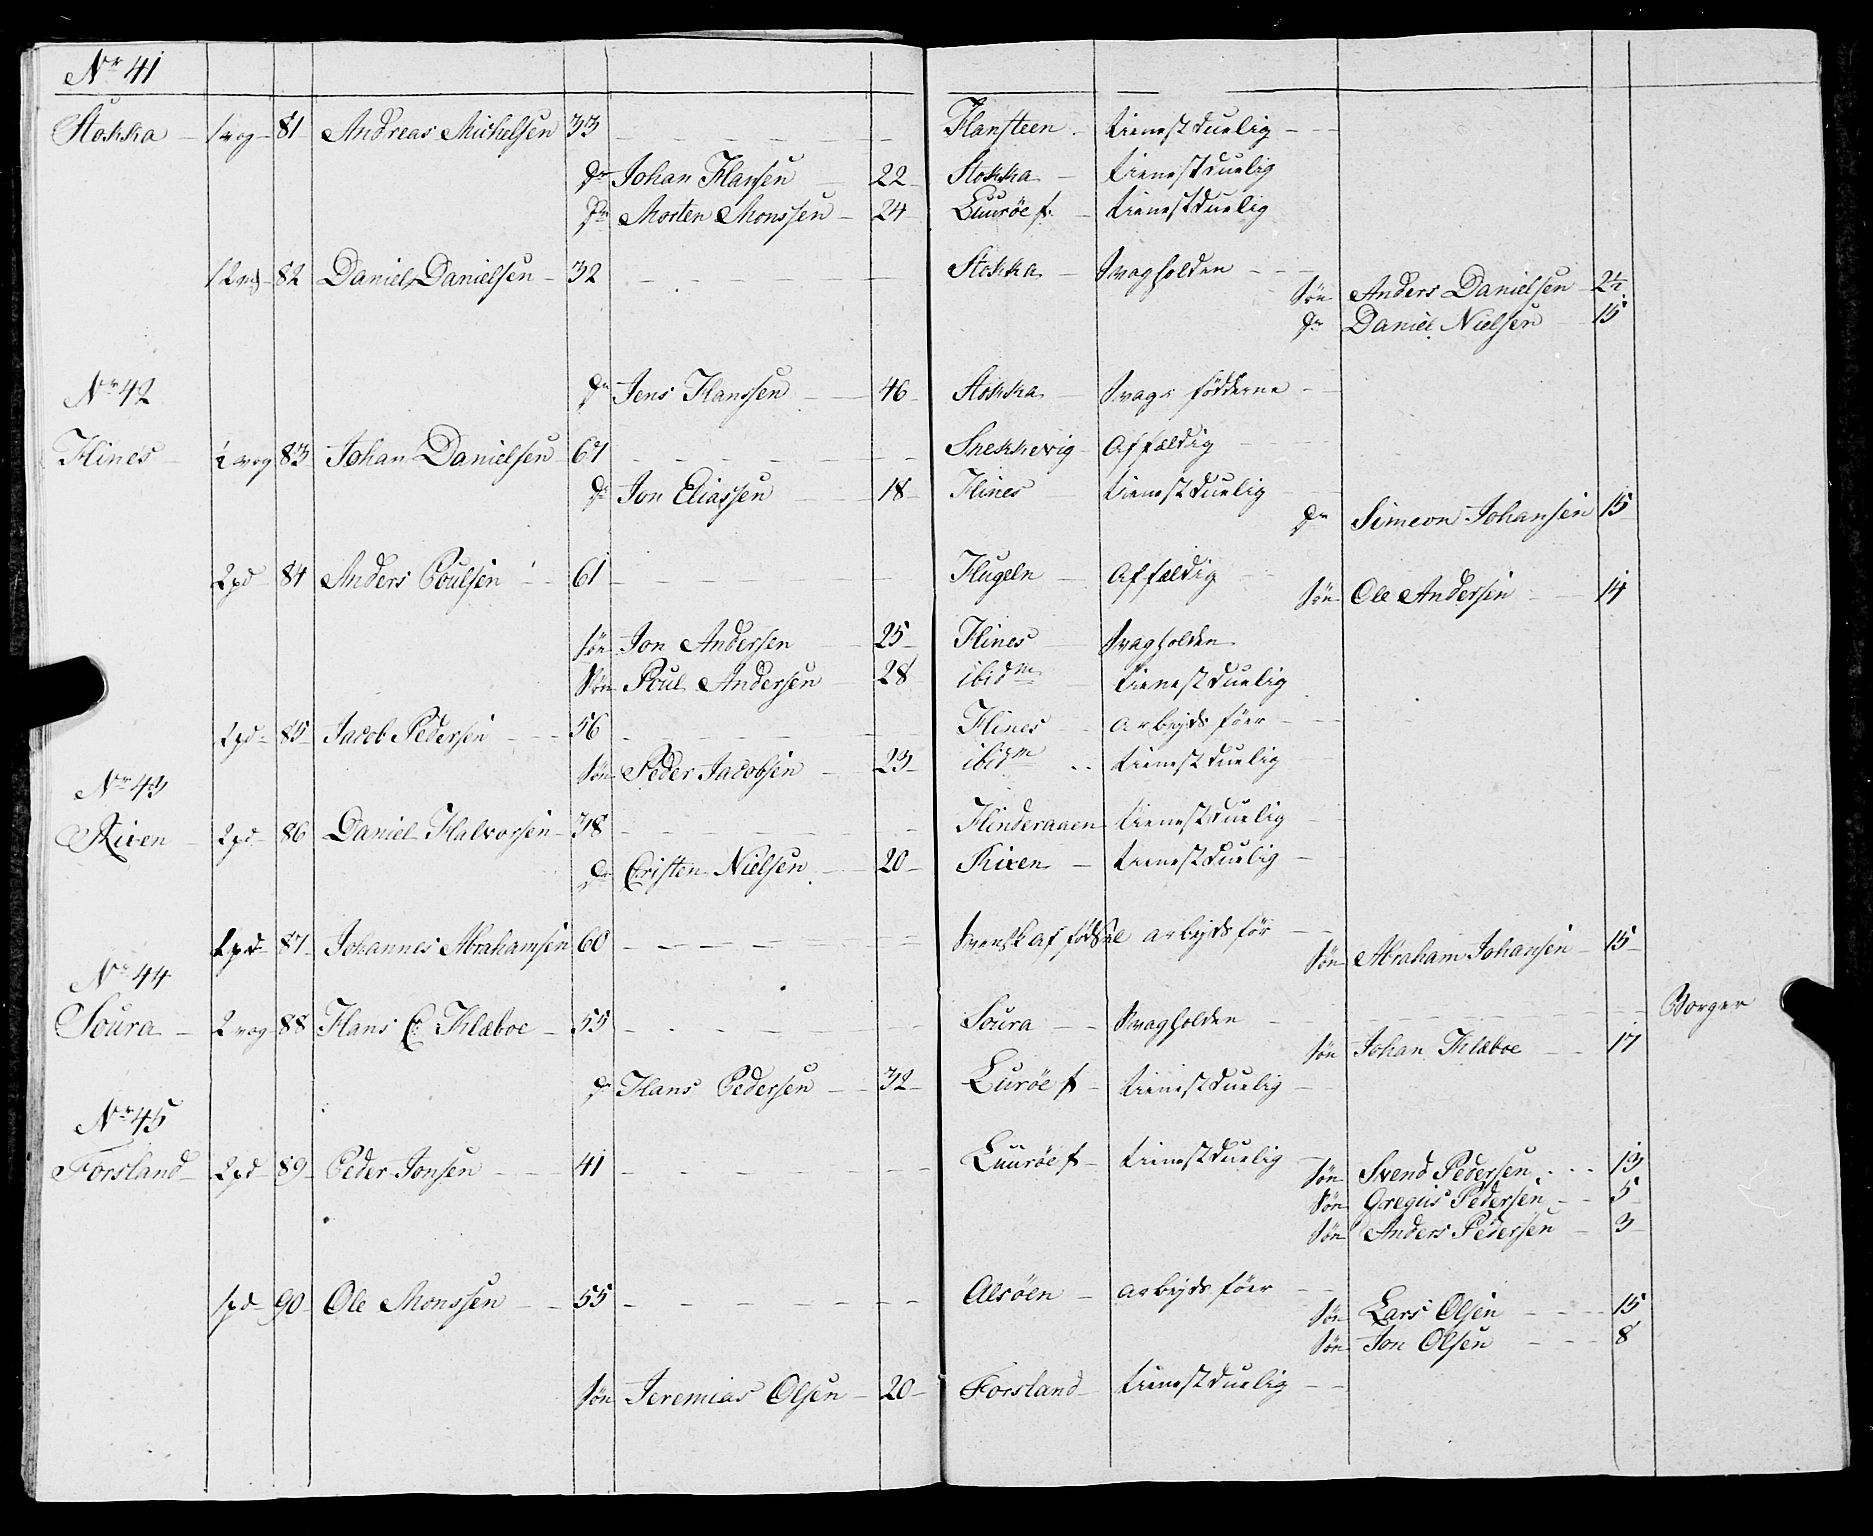 Nr 41
Stokka 1 vog 81 Andreas Michelsen 33 Hansteen tienestduelig
Dr Johan Hansen 22 Stokka tienestduelig
Dr Morten Monssen 24 Luurøe f. tienestduelig
82 Daniel Danielsen 32 Stokka Svagholden
Søn Anders Danielsen 2½
Dr Daniel Nielsen 15
Nr 42
Dr Jens Hanssen 46 Stokka Svage födderne
Hines 2 vog 83 Johan Danielsen 67 Snekkevig Affældig
Dr Jon Eliassen 18 Hines tienestduelig
Dr Simeon Johansen 15
2 pd 84 Anders Poulsen 61 Hugeln Affældig
Søn Ole Andersen 14
Søn Jon Andersen 25 Hines Svagholden
Søn Poul Andersen 28 ibidm tienestduelig
2 pd 85 Jacob Pedersen 56 Hines arbeyds föer
Søn Peder Jacobsen 23 ibidm tienestduelig
Nr 43
Riven 2 pd 86 Daniel Halvorsen 38 Hinderaaen tienestduelig
Dr Cristen Nielsen 20 Riven tienestduelig
2 pd 87 Johannes Abrahamsen 60 Svensk af födsel arbeydsför
Søn Abraham Johansen 15
Nr 44
Soura 2 vog 88 Hans C. Klæboe 55 Soura Svagholden Borger
Søn Johan Klæboe 17
Dr Hans Pedersen 32 Lurøe f tienestduelig
Nr 45
Forsland 2 pd 89 Peder Jonsen 41 Luurøe f tienestduelig
Søn Svend Pedersen 13
Søn Gregus Pedersen 5
Søn Anders Pedersen 3
1 pd 90 Ole Monssen 55 Alsöen arbeyds föer
Søn Lars Olsen 15
Søn Jon Olsen 8
Søn Jeremias Olsen 20 Forsland tienestduelig